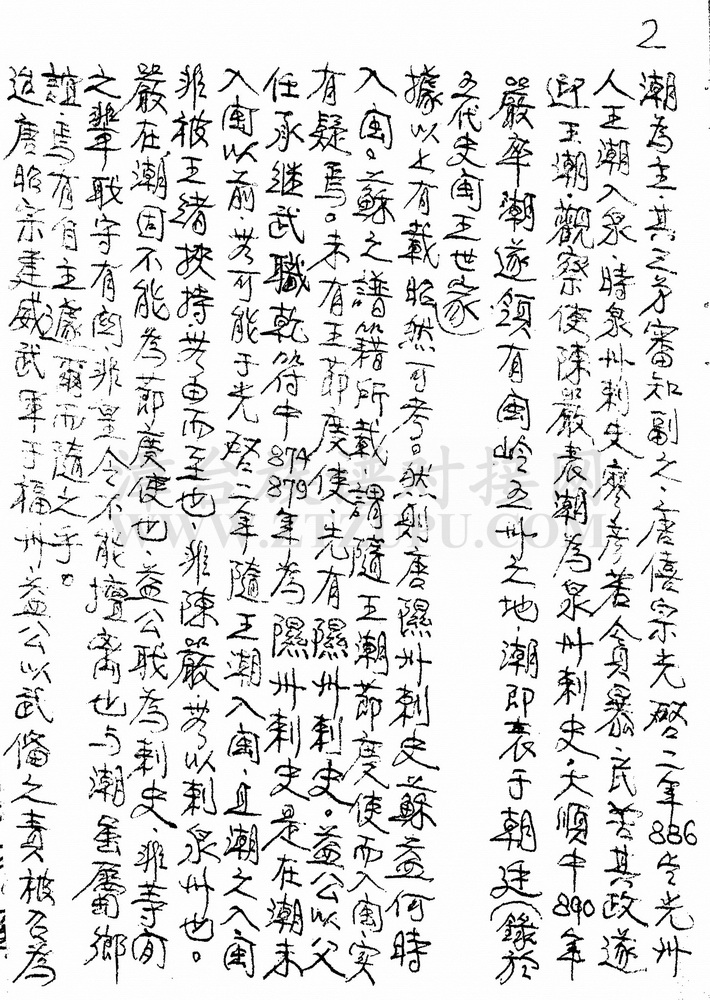 2
潮為主·其之弟審知副之·唐僖宗光啓二年886 光州
人王潮入泉·時泉州刺史廖彥若貪暴·民苦其政遂
迎王潮觀察使陳嚴表潮為泉州刺史·大順中890年
嚴卒潮遂領有閩嶺五州之地潮即表于朝廷(錄於
五代史閩王世家)
據以上有載昭然可考。然則唐隰州刺史蘇益何時
入閩。蘇之譜籍所載謂隨王潮節度使而入閩实
有疑焉。未有王節度使·先有隰州刺史。益公以父
任承継武職乾符中874 879年為隰州刺史是在潮未
入閩以前·若可能于光啓二年隨王潮入閩·且潮之入閩
非被王緒挾持·若由而至也·非陳嚴·若以刺泉州也。
嚴在·潮固不能為節度使也·益公職為刺史·非等閑
之輩職守有関·非皇令不能擅离也与潮虽屬鄉
誼·焉有自主遽爾而隨之乎。
迨唐昭宗建威武軍于福州·益公以武備之責被召為
沛台族谱对接网
WWW.ZTZUPU.COM